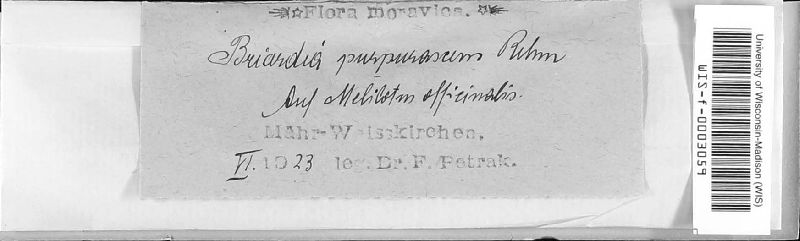 Flora moravica.
Briardia purpurascens Rehm
Auf Melilotus officinalis.
Mähr-Weisskirchen,
VI. 1923 leg. Dr. F. Petrak.
University of Wisconsin-Madison (WIS)
WIS-f-0003059